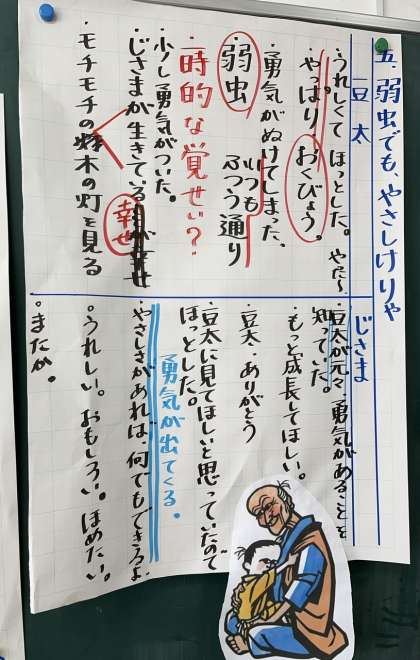 五、弱虫でも、やさしけりゃ
豆太
うれしくて ほっとした。やだ〜。
やっぱり、おくびょう。
勇気がぬけてしまった、
弱虫 いつも
ふつう通り
一時的な覚せい？
少し勇気がついた。
じさまが生きている
幸せ
モチモチの木の灯を見る
じさま
豆太が元々、勇気があることを
知っていた。
もっと成長してほしい。
豆太、ありがとう
豆太に見てほしいと思っていたので
ほっとした。
勇気が出てくる。
やさしさがあれば何でもできるよ
うれしい。おもしろい。ほめたい。
またか。